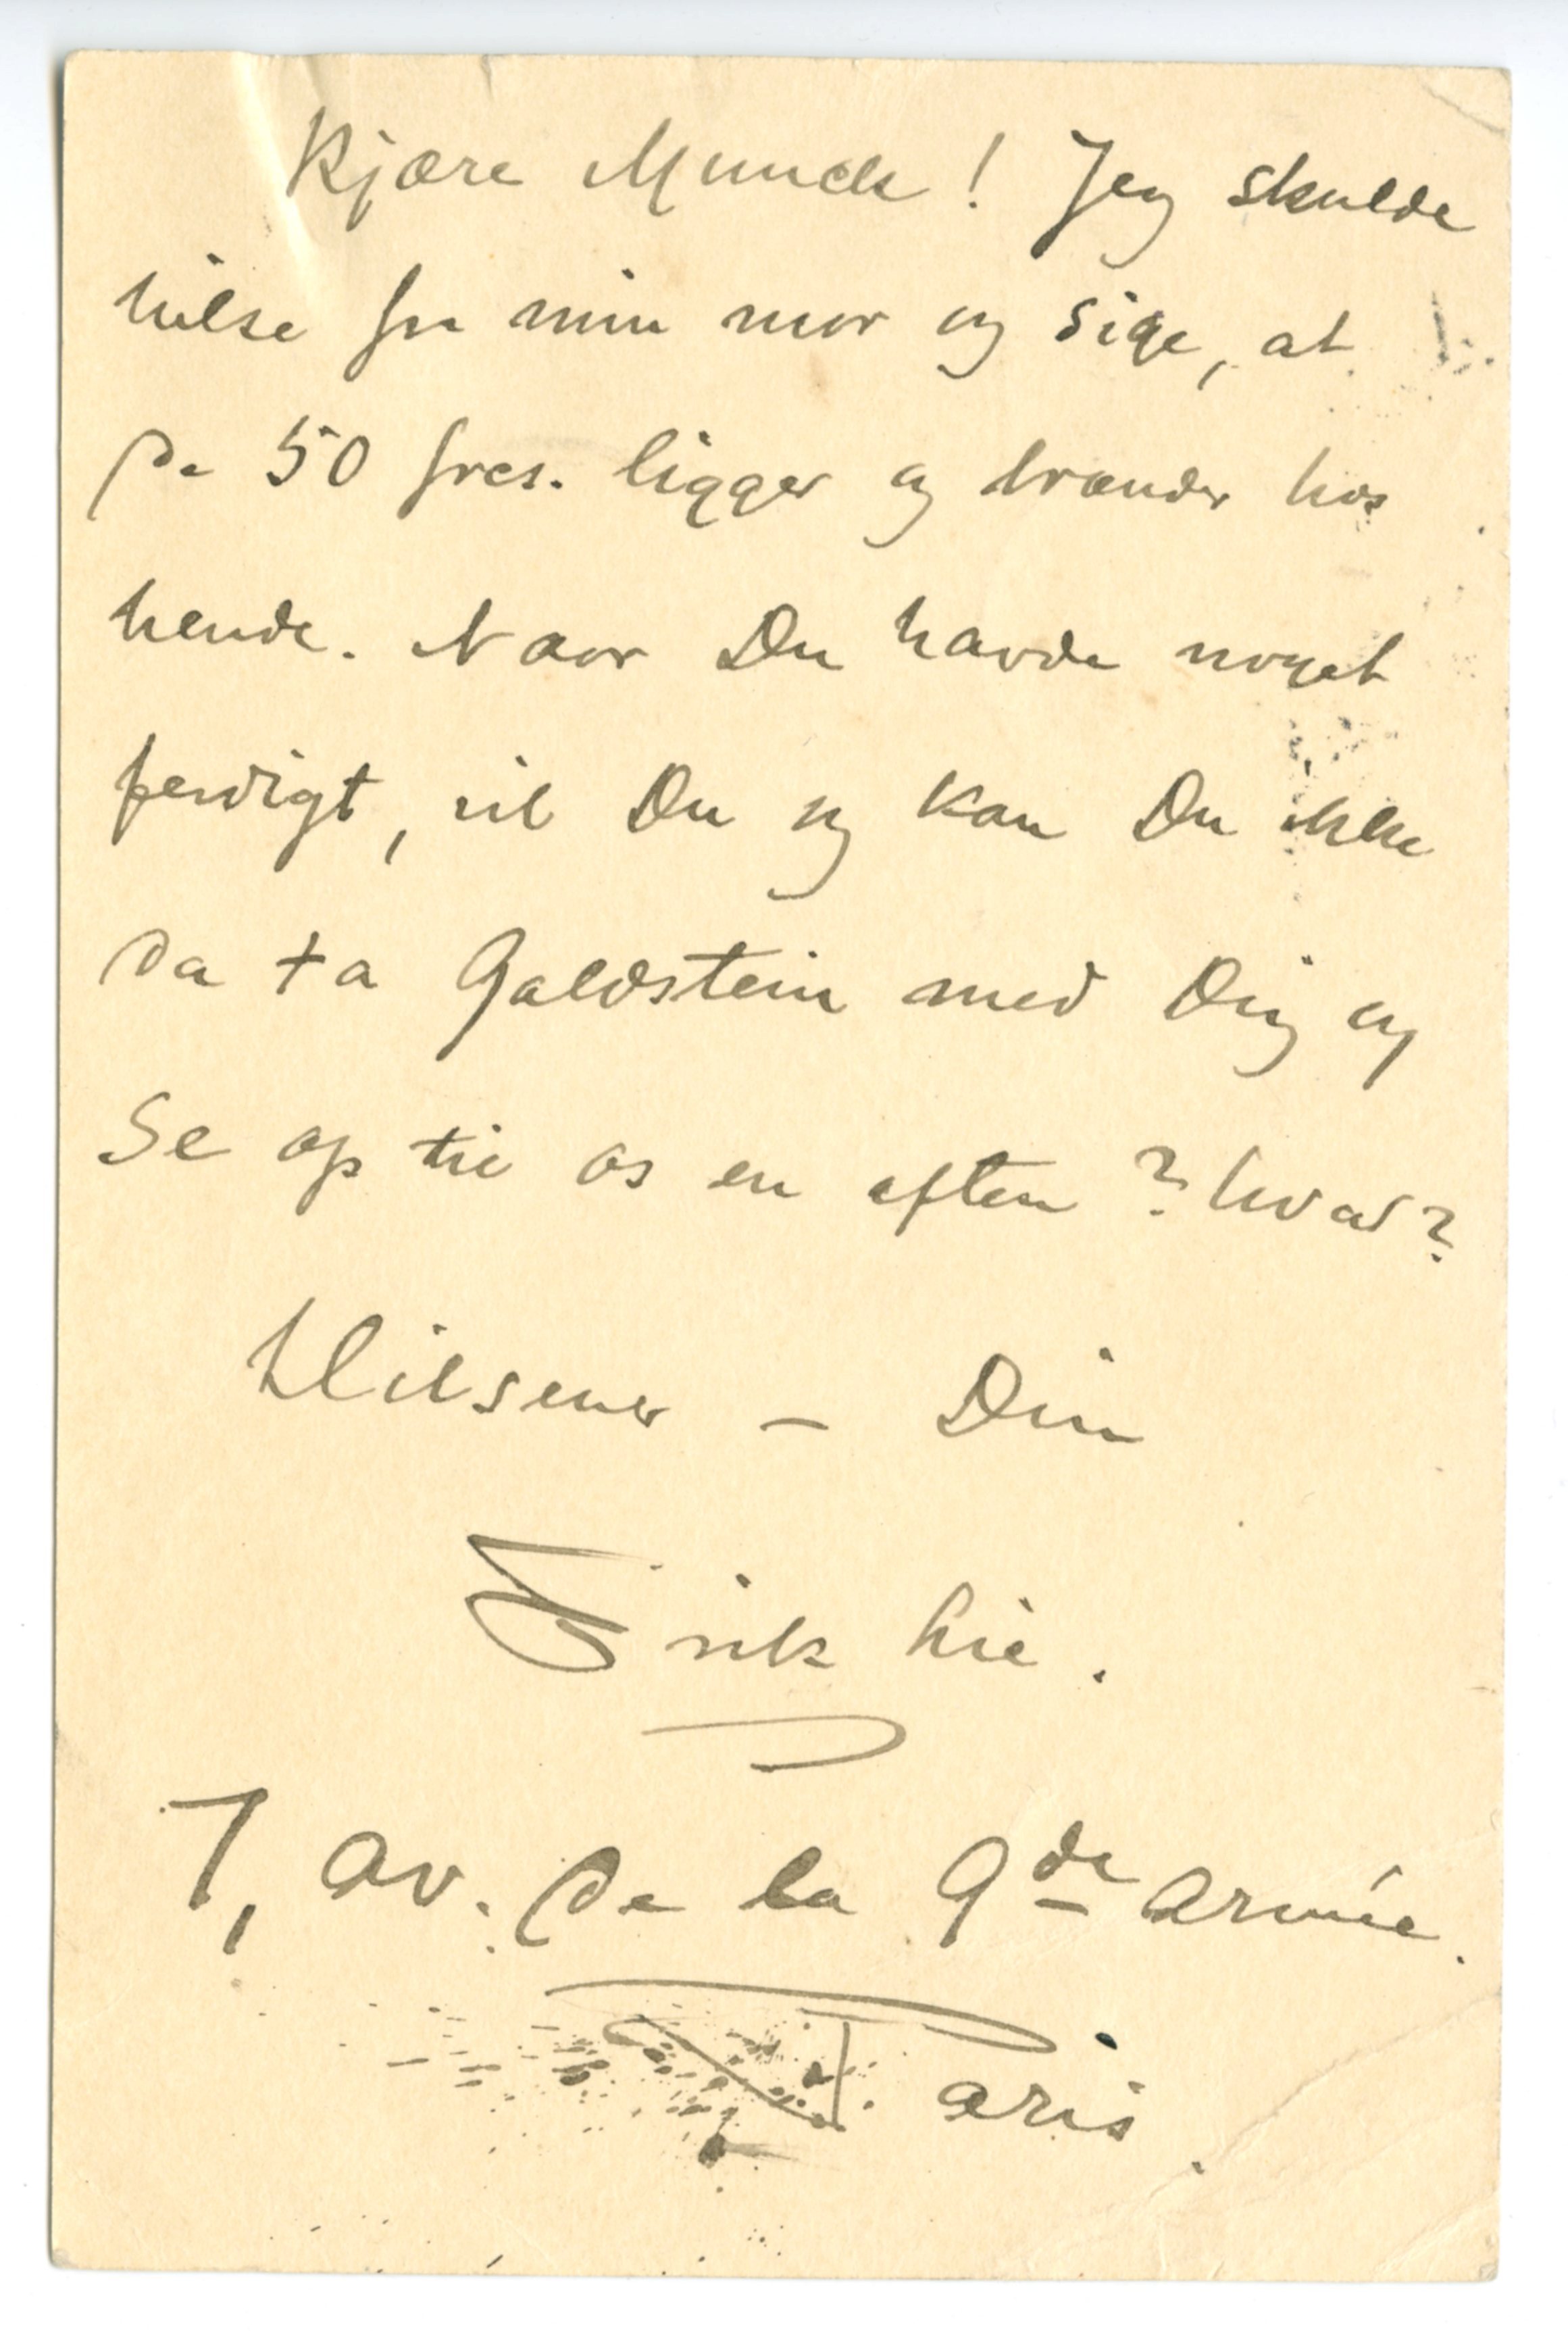 Kjære Munch! Jeg skulde
hilse fra min mor og sige, at
de 50 frcs. ligger og brænder hos
hende. Naar Du havde noget
ferdigt, vil Du og kan Du ikke
da ta Goldstein med Dig og
se op til os en aften? hvad?
Hilsener – Din
Erik Lie.
7, av. de la Gde Armée.
Paris.